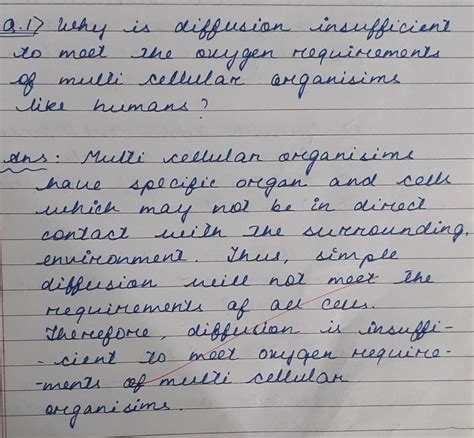 Q.1> Why is diffusion insufficient
to meet the oxygen requirements
of multi cellular organisims
like humans?
Ans: Multi cellular organisims
have specific organ and cells
which may not be in direct
contact with the surrounding.
environment. Thus, simple
diffusion will not meet the
requirements of all cells.
Therefore, diffusion is insuffi-
-cient to meet oxygen require-
-ments of multi cellular
organisims.